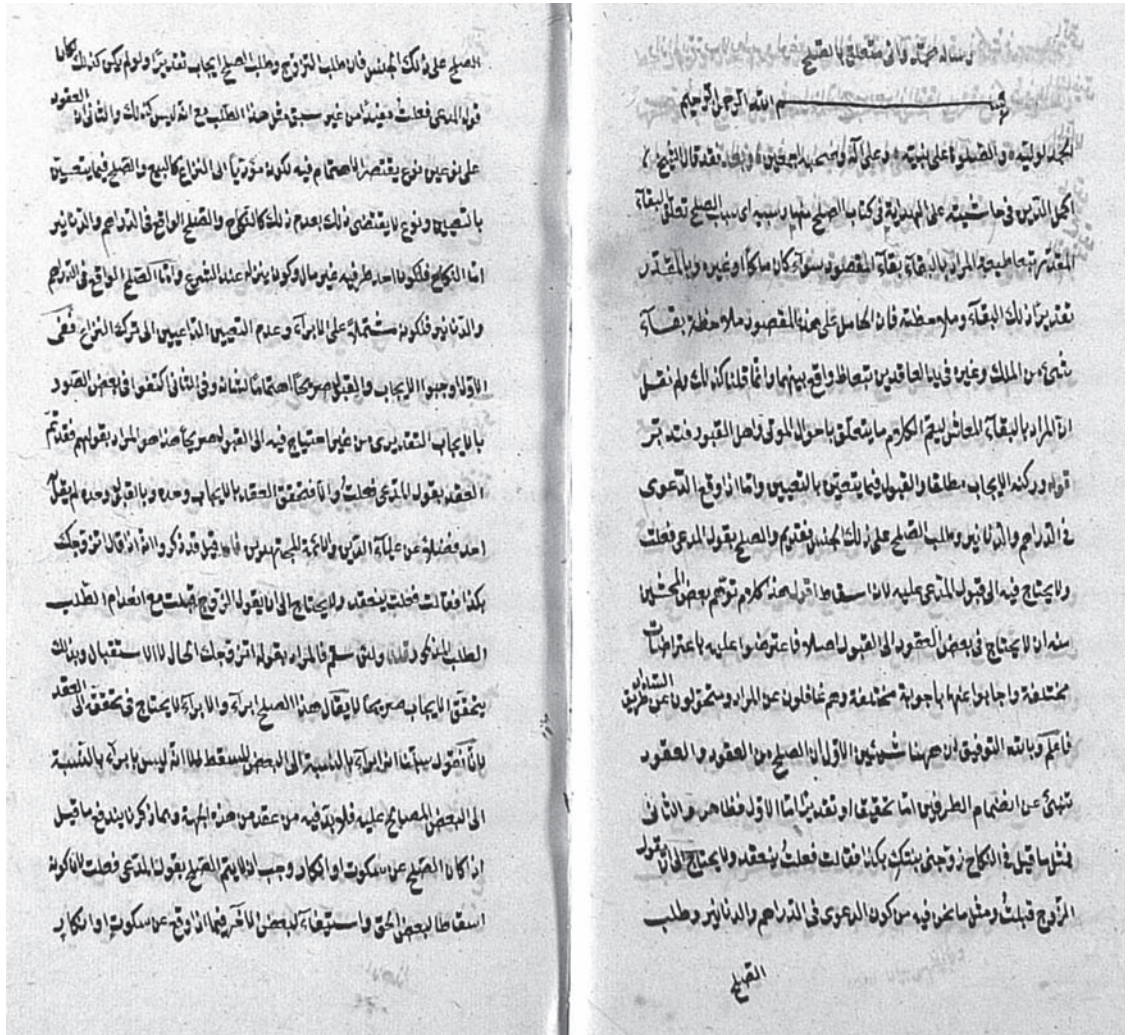 رساله صمداني متعلق بالصلح
بسم الله الرحمن الرحيم
الحمد لوليه والصلوة على نبيه وعلى آله وصحبه اجمعين وبعد فقد قال الشيخ
اكمل الدين في حاشيته على الهداية في كتاب الصلح منها وسببه اى سبب الصلح تعلق البقاء
المقدر بتعاطيه المراد بالبقاء بقاء المقصود سواء كان ملكا او غيره وبالمقدر
تقدير ذلك البقاء وملاحظته فان الحامل على هذا المقصود ملاحظة بقاء
شيء من الملك وغيره في يد العاقدين بتعاط واقع بينهما وانما قلنا كذلك ولم نقل
ان المراد بالبقاء للعاش ليتم الكلام ما يتعلق باحوال الموتى واهل القبور فتدبر
قوله وركنه الايجاب مطلقا والقبول فيما يتعين بالتعيين واما اذا وقع الدعوى
في الدراهم والدنانير وطلب الصلح على ذلك الجنس فقد تم الصلح بقول المدعى فعلت
ولا يحتاج فيه الى قبول المدعى عليه لانه اسقاط اقول هذا كلام توهم بعض المحشين
منه ان لا يحتاج في بعض العقود الى القبول اصلا فاعترضوا عليه باعتراضات
مختلفة واجابوا عنها باجوبة مختلفة وهم غافلون عن المراد ومتحولون عن طريق السداد
فاعلم وبالله التوفيق ان ههنا شيئين الاول ان الصلح من العقود والعقود
تنبئ عن انضمام الطرفين اما تحقيقا او تقديرا اما الاول فظاهر والثانى
فمثل ما قيل في النكاح زوجنى بنتك بكذا فقالت فعلت ينعقد ولا يحتاج الى ان يقول
الزوج قبلت ومثل ما نحن فيه من كون الدعوى في الدراهم والدنانير وطلب
الصلح
الصلح على ذلك الجنس فان طلب التزوج وطلب الصلح ايجاب تقديرا ولو لم يكن كذلك لكان
قول المدعى فعلت مفيدا من غير سبق مثل هذا الطلب مع انه ليس كذلك والثانى ان العقود
على نوعين نوع يقتضى الاهتمام فيه لكونه مؤديا الى النزاع كالبيع والصلح فيما يتعين
بالتعيين ونوع لا يقتضى ذلك بعدم ذلك كالنكاح والصلح الواقع في الدراهم والدنانير
اما النكاح فلكون احد طرفيه غير مال وكونه عند الشرع واما الصلح الواقع في الدراهم
والدنانير فلكونه مشتملا على الابراء وعدم التعيين الداعيين الى ترك النزاع ففى
الاول اوجبوا الايجاب والقبول صريحا اهتماما لشانه وفي الثانى اكتفوا في بعض الصور
بالايجاب التقديرى من غير احتياج فيه الى القبول صريحا هذا هو المراد بقولهم فقد تم
العقد بقول المدعى فعلت والا فتحقق العقد بالايجاب وحده وبالقبول وحده لم يقل
احد فضلا عن علماء الدين والائمة المجتهدين فان قيل قد ذكروا انه اذا قال اتزوجك
بكذا فقالت فعلت ينعقد ولا يحتاج الى ان يقول الزوج قبلت مع انعدام الطلب
الطلب المذكور قلنا ولئن سلم فالمراد بقوله اتزوجك الحال لا الاستقبال وبذلك
يتحقق الايجاب صريحا لا يقال هذا الصلح ابراء والابراء لا يحتاج في تحققه الى العقد
لانا نقول سلمنا انه ابراء بالنسبة الى البعض المسقط الا انه ليس بابراء بالنسبة
الى البعض المصالح عليه فلا بد فيه من عقد من هذه الجهة وبما ذكرنا يندفع ما قيل
اذا كان الصلح عن سكوت او انكار وجب ان لا يتم الصلح بقول المدعى فعلت لان كونه
اسقاطا لبعض الحق واستيفاء لبعض الآخر فيما اذا وقع عن سكوت او انكار